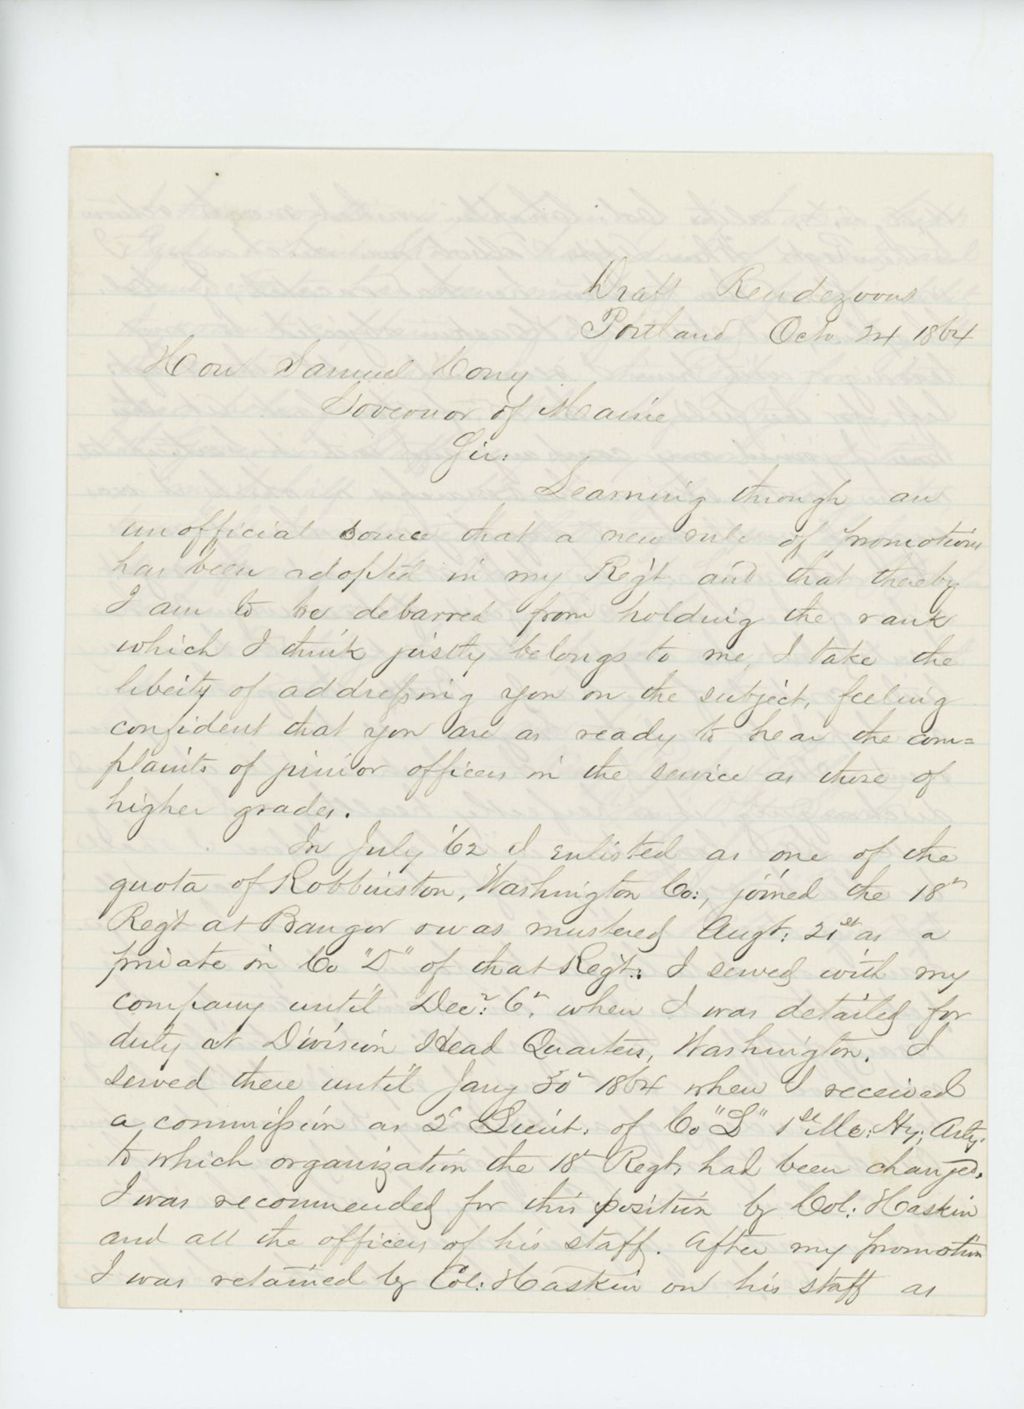 Draft Rendezvous
Portland Oct. 24 1864
Hon Samuel Cony
Governor of Maine
Sir:
Learning through an
unofficial source that a new rule of promotions
has been adopted in my Reg't and that thereby
I am to be debarred from holding the rank
which I think justly belongs to me, I take the
liberty of addressing you on the subject, feeling
confident that you are as ready to hear the com=
plaints of junior officers in the service as those of
higher grades.
In July '62 I enlisted as one of the
quota of Robbinston, Washington Co:, joined the 18th
Reg't at Bangor & was mustered Augt: 21st as a
private in Co "D" of that Reg't: I served with my
company until Decr: 6th when I was detailed for
duty at Division Head Quarters, Washington. I
served there until Jany 30th 1864 when I received
a commission as 2d Lieut. of Co "L" 1st Me: Hy: Arty.
to which organization the 18th Regt. had been changed.
I was recommended for this position by Col: Haskin
and all the officers of his staff. After my promotion
I was retained by Col: Haskin on his staff as